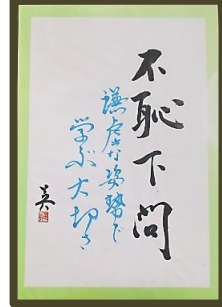 不恥下問
謙虚な姿勢で
学ぶ大切さ
英